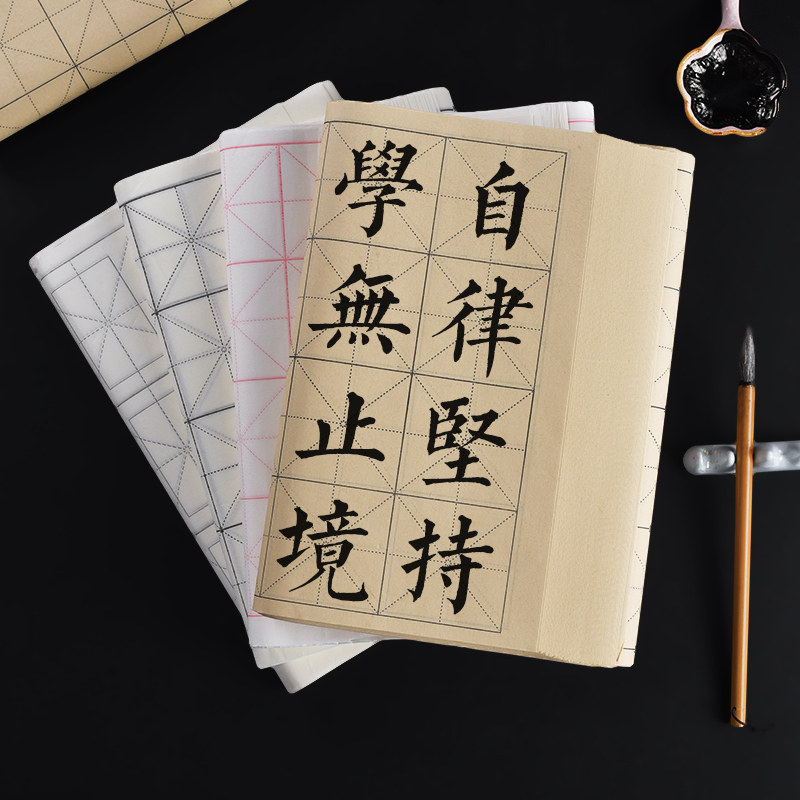 自律堅持
學無止境